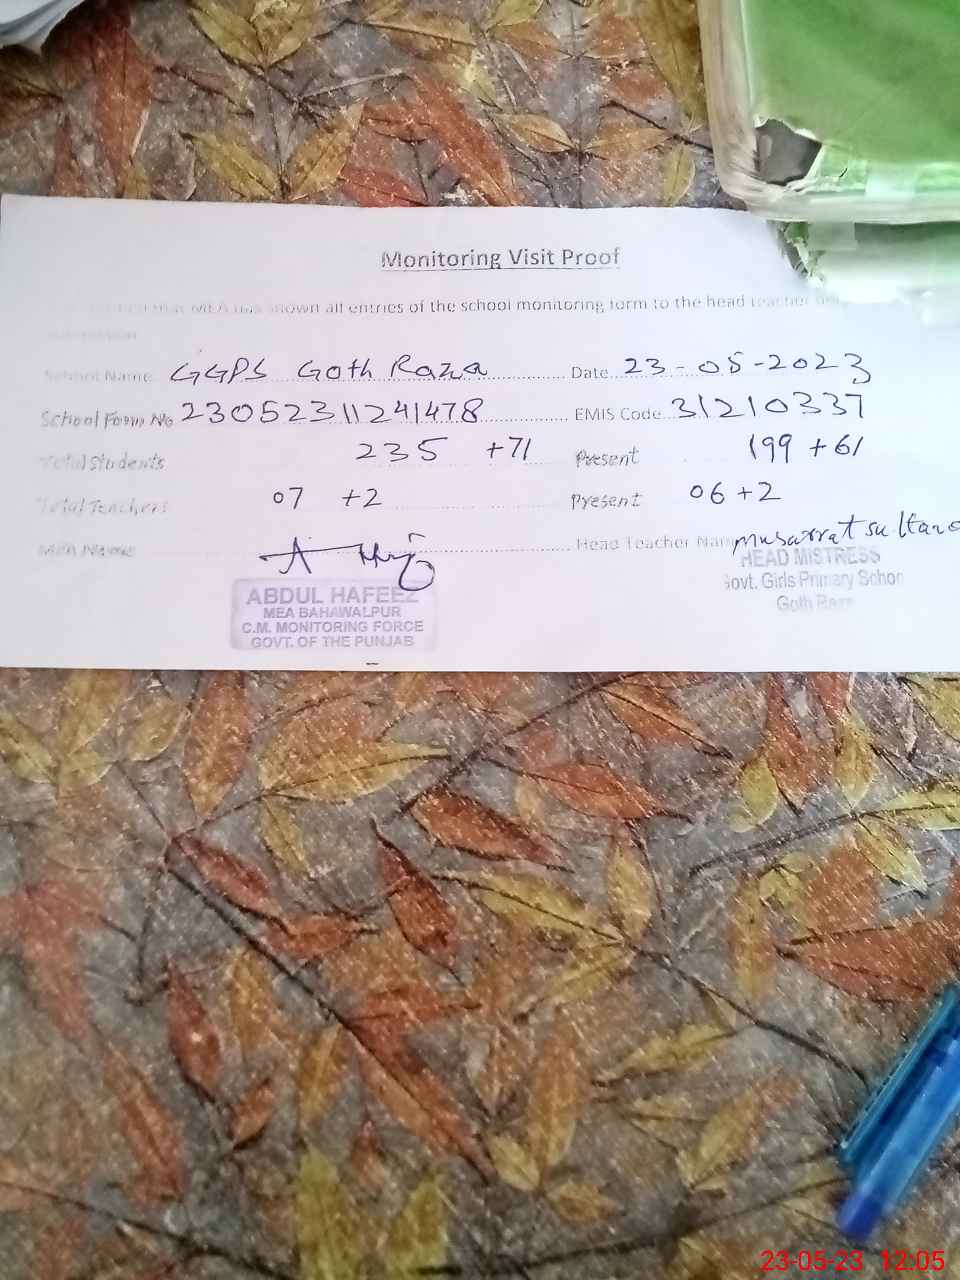 Monitoring Visit Proof
that MEA has shown all entries of the school monitoring form to the head teacher
School Name GGPS Goth Raza Date 23-05-2023
School Form No 23052311241478 EMIS Code 31210337
Total Students 235 +71 Present 199 +61
Total Teachers 07 +2 Present 06 +2
MEA Name Head Teacher Nam musarrat sultana
HEAD MISTRESS
Govt. Girls Primary School
Goth Raza
ABDUL HAFEEZ
MEA BAHAWALPUR
C.M. MONITORING FORCE
GOVT. OF THE PUNJAB
23-05-23 12:05